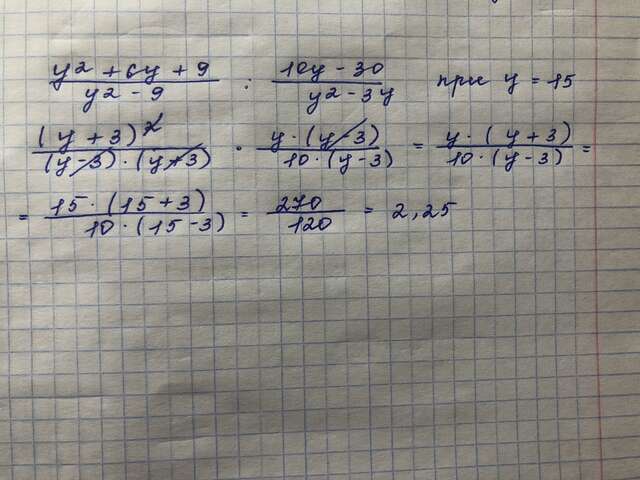 y² + 6y + 9 / y² - 9 : 10y - 30 / y² - 3y при y = 15
(y + 3)² / (y - 3) · (y + 3) · y · (y - 3) / 10 · (y - 3) = y · (y + 3) / 10 · (y - 3) =
= 15 · (15 + 3) / 10 · (15 - 3) = 270 / 120 = 2,25